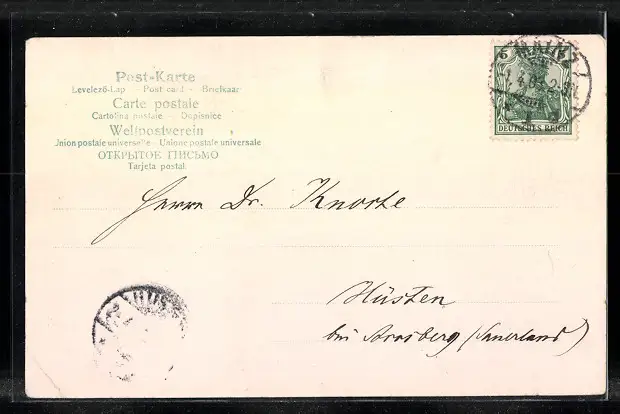 Post-Karte
Levelező-Lap - Post card - Briefkaart
Carte postale
Cartolina postale - Dopisnice
Weltpostverein
Union postale universelle - Unione postale universale
ОТКРЫТОЕ ПИСЬМО
Tarjeta postal.
5
MAINZ
DEUTSCHES REICH
Herrn Dr. Knorke
Hüsten
bei Arnsberg (Sauerland)
HÜS